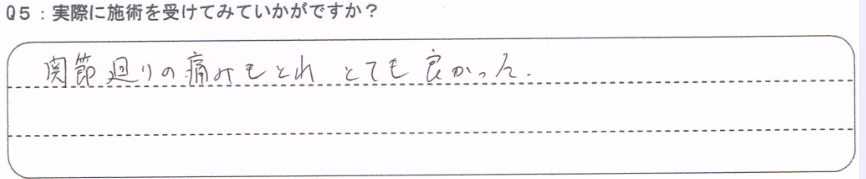 Q5：実際に施術を受けてみていかがですか？
関節廻りの痛みもとれ とても良かった.